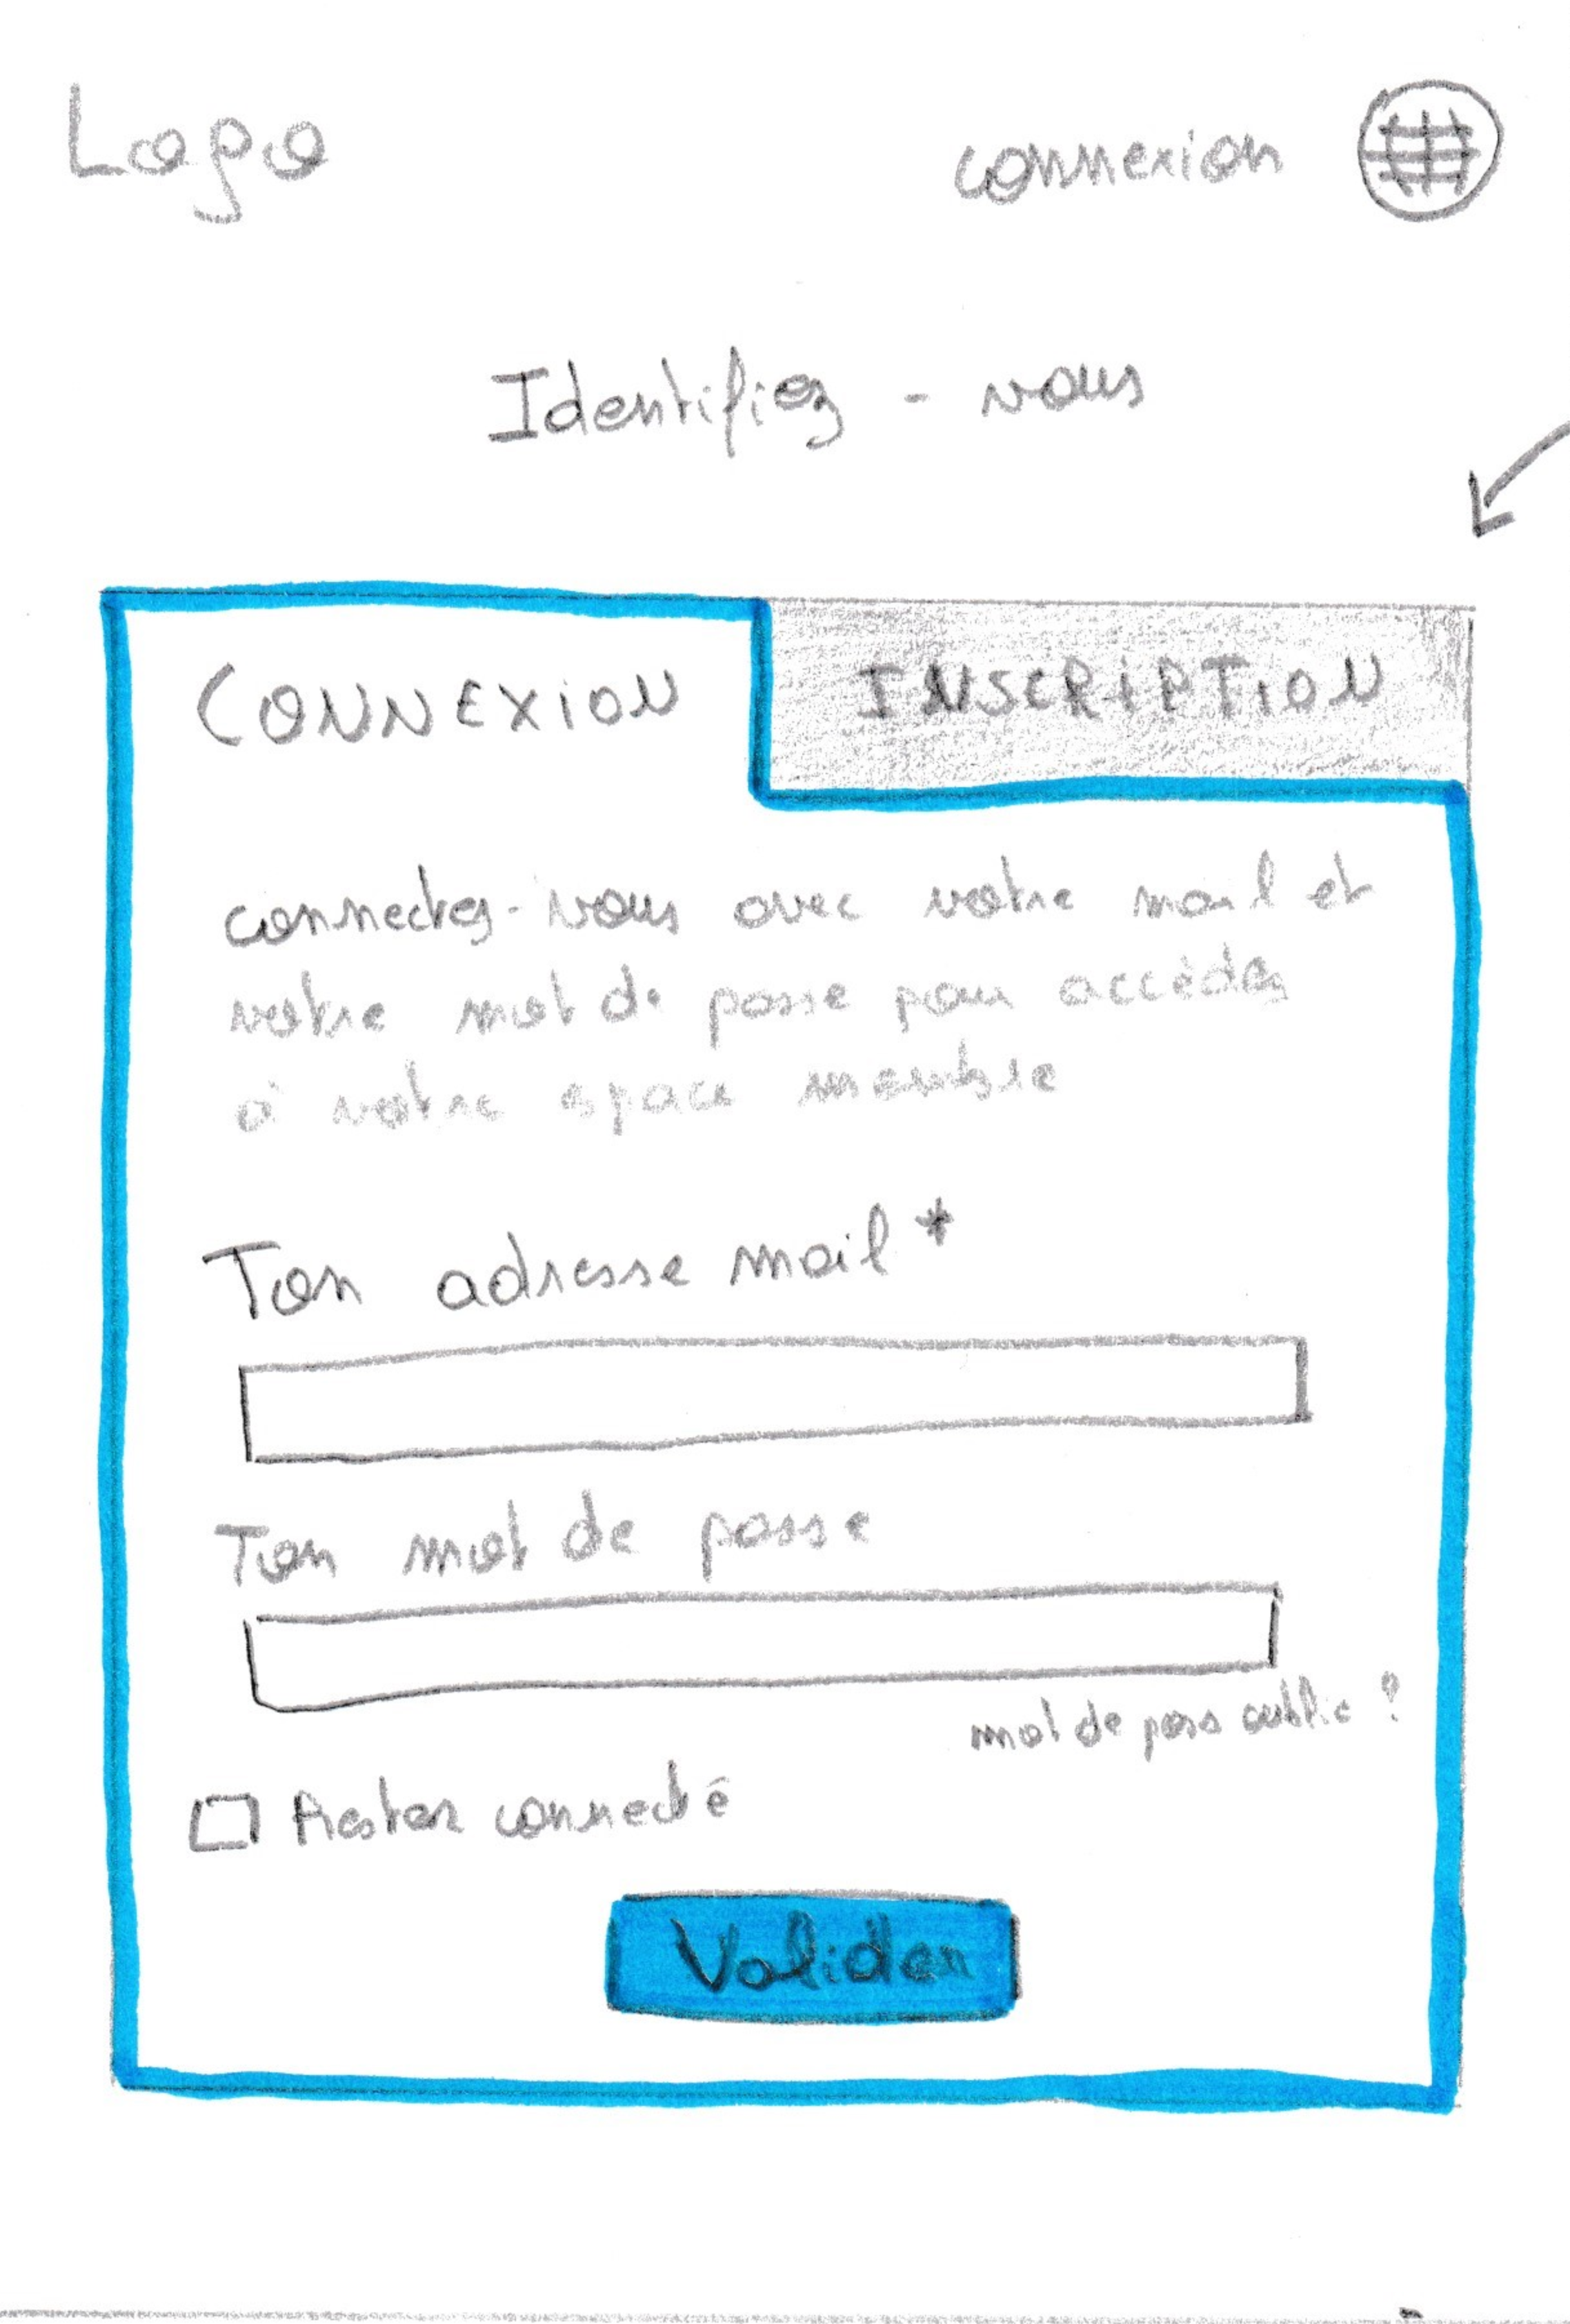 Logo
connexion
Identifiez - vous
CONNEXION
INSCRIPTION
connectez-vous avec votre mail et
votre mot de passe pour accèdez
à votre espace membre
Ton adresse mail *
Ton mot de passe
mot de pass oublie ?
Rester connecté
Valider